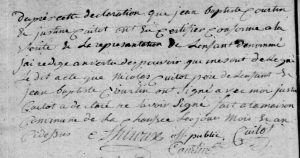 d'après cette declaration que jean baptiste Courlin
et justine Cuitot ont du Certifier Conforme a la
verité de La representation de Lenfant denommé
jai redigé en vertu des pouvoir qui me sont delegué
Le dit acte que Nicolas Cuitot de Lenfant
jean baptiste Courlin ont Signé avec moi justine
Cuitot a declaré ne Savoir Signé fait a la maison
Commune de La les jour Mois et an
Cidessus off. public Cuitot
Courlin